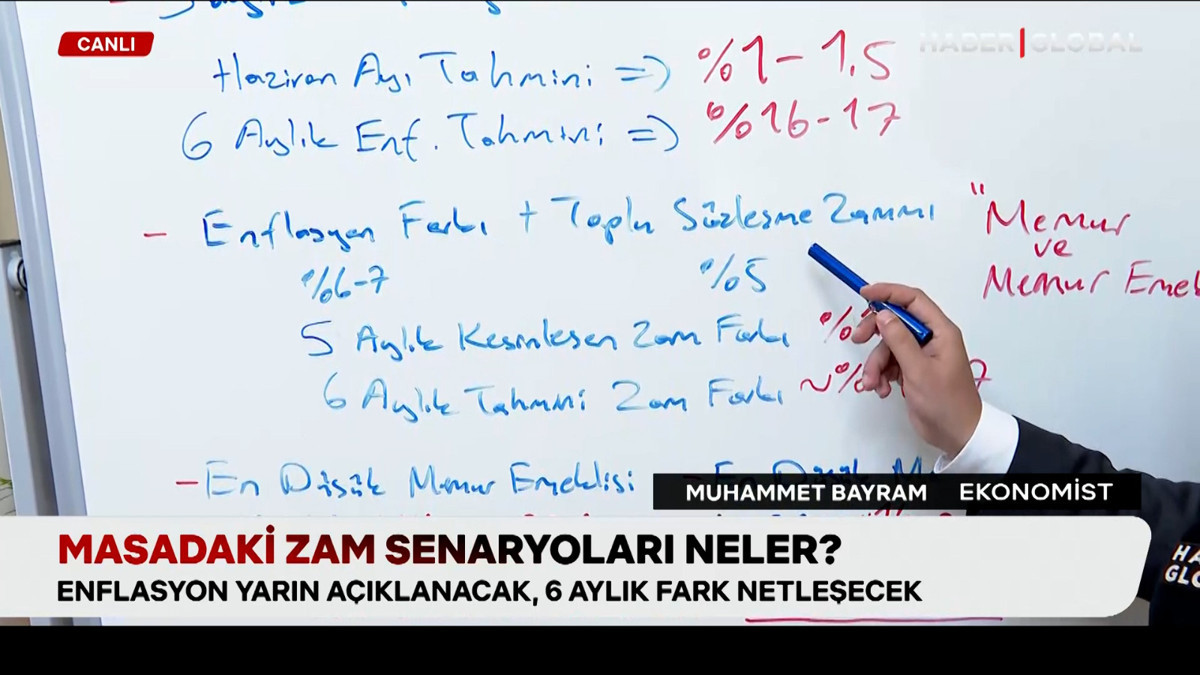 CANLI
HABER GLOBAL
Haziran Ayı Tahmini => %1-1.5
6 Aylık Enf. Tahmini => %16-17
- Enflasyon Farkı + Toplu Sözleşme Zammı
%6-7 %5
"Memur
ve
Memur
5 Aylık Kesinleşen Zam Farkı
6 Aylık Tahmini Zam Farkı
- En Düşük Memur Emeklisi - En Düşük
MUHAMMET BAYRAM EKONOMİST
MASADAKİ ZAM SENARYOLARI NELER?
ENFLASYON YARIN AÇIKLANACAK, 6 AYLIK FARK NETLEŞECEK